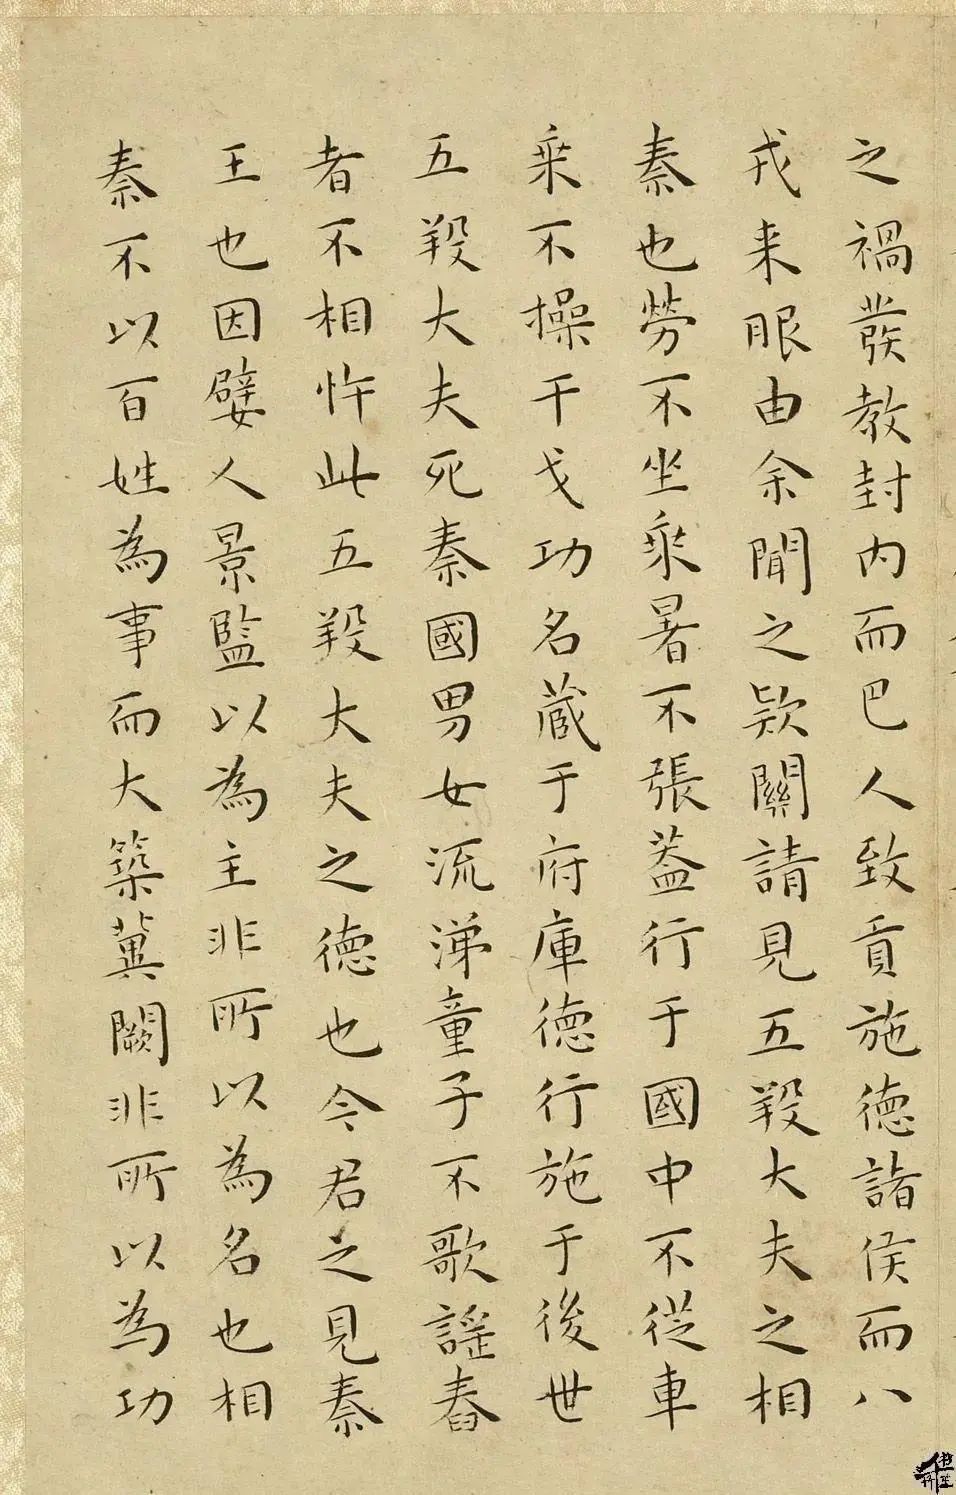 之禍發教封内而巴人致貢施德諸侯而八
戎来服由余聞之欵關請見五羖大夫之相
秦也勞不坐乘暑不張蓋行于國中不從車
乘不操干戈功名蔵于府庫德行施于後世
五羖大夫死秦國男女流涕童子不歌謡舂
者不相忤此五羖大夫之德也今君之見秦
王也因嬖人景監以為主非所以為名也相
秦不以百姓為事而大築冀闕非所以為功